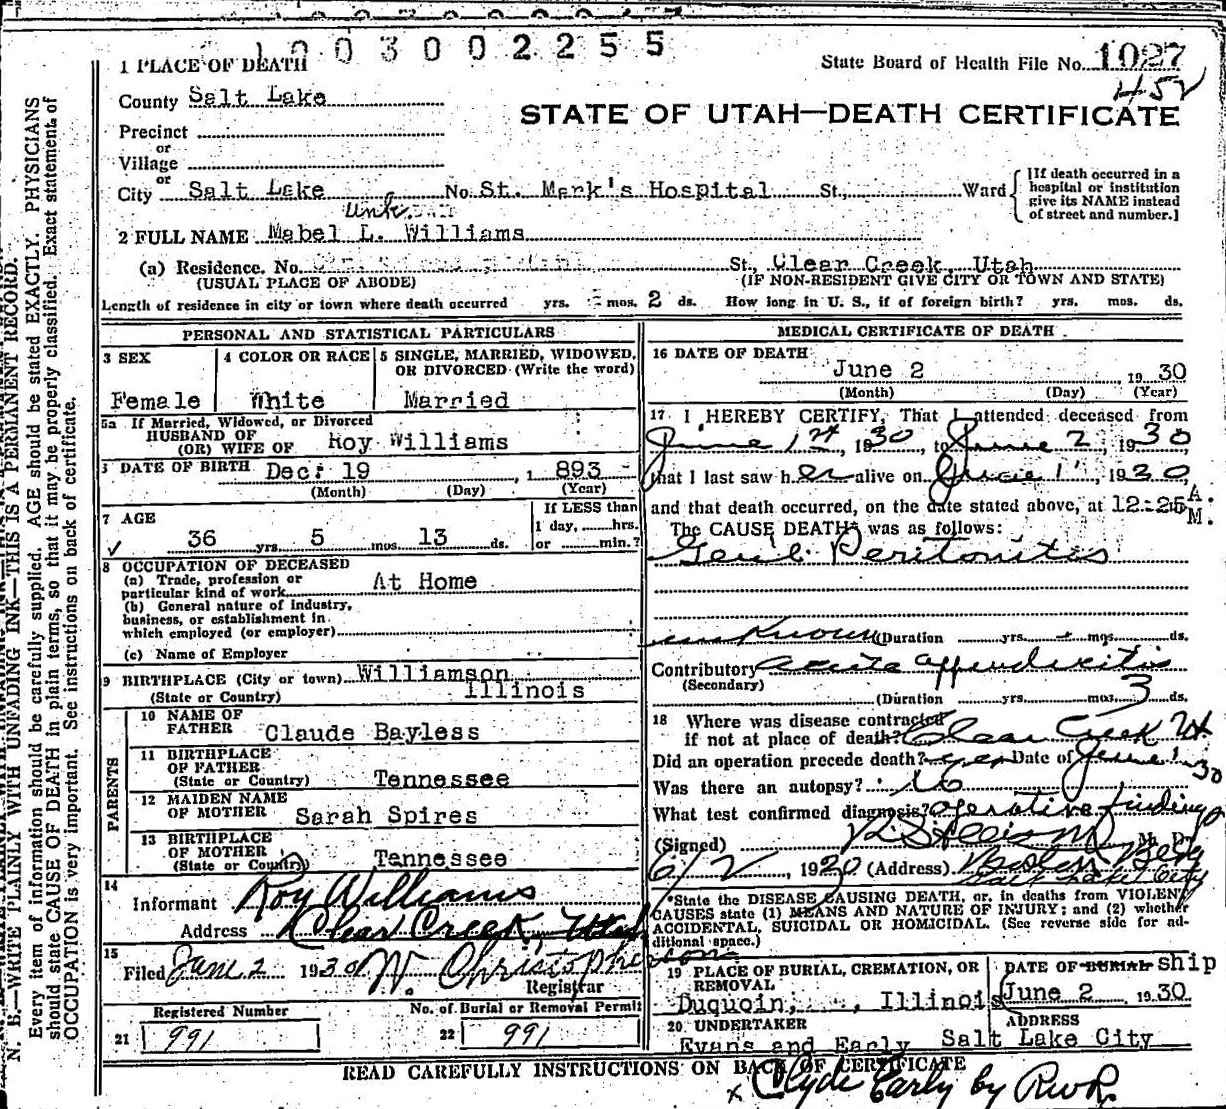 1003002255
1 PLACE OF DEATH
State Board of Health File No. 1027
452
County Salt Lake
STATE OF UTAH—DEATH CERTIFICATE
Precinct
or
Village
or
City Salt Lake No. St. Mark's Hospital St., Ward
[If death occurred in a
hospital or institution
give its NAME instead
of street and number.]
Unk.
2 FULL NAME Mabel L. Williams
(a) Residence. No. St., Clear Creek, Utah
(USUAL PLACE OF ABODE) (IF NON-RESIDENT GIVE CITY OR TOWN AND STATE)
Length of residence in city or town where death occurred yrs. mos. 2 ds. How long in U. S., if of foreign birth? yrs. mos. ds.
PERSONAL AND STATISTICAL PARTICULARS
3 SEX
Female
4 COLOR OR RACE
White
5 SINGLE, MARRIED, WIDOWED,
OR DIVORCED (Write the word)
Married
5a If Married, Widowed, or Divorced
HUSBAND OF
(OR) WIFE OF Roy Williams
DATE OF BIRTH Dec. 19, 1893
(Month) (Day) (Year)
7 AGE
36 yrs. 5 mos. 13 ds.
If LESS than
1 day, hrs.
or min.?
8 OCCUPATION OF DECEASED
(a) Trade, profession or
particular kind of work At Home
(b) General nature of industry,
business, or establishment in
which employed (or employer)
(c) Name of Employer
9 BIRTHPLACE (City or town) Williamson
(State or Country) Illinois
PARENTS
10 NAME OF
FATHER Claude Bayless
11 BIRTHPLACE
OF FATHER
(State or Country) Tennessee
12 MAIDEN NAME
OF MOTHER Sarah Spires
13 BIRTHPLACE
OF MOTHER
(State or Country) Tennessee
14
Informant Roy Williams
Address Clear Creek, Utah
15
Filed June 2 1930 W. Christopherson
Registrar
Registered Number
21 991
No. of Burial or Removal Permit
22 991
MEDICAL CERTIFICATE OF DEATH
16 DATE OF DEATH
June 2, 1930
(Month) (Day) (Year)
17 I HEREBY CERTIFY, That I attended deceased from
June 1st, 1930, to June 2, 1930
that I last saw her alive on June 1, 1930,
and that death occurred, on the date stated above, at 12:25 A. M.
The CAUSE DEATH* was as follows:
Gen'l. Peritonitis
unknown (Duration yrs. mos. ds.
Contributory acute appendicitis
(Secondary)
(Duration yrs. mos. 3 ds.
18 Where was disease contracted
if not at place of death? Clear Creek Ut
Did an operation precede death? yes Date of June 1 30
Was there an autopsy? no
What test confirmed diagnosis? operative findings
(Signed) M. D.
6/2, 1930 (Address) Boston Bldg
Salt Lake City
*State the DISEASE CAUSING DEATH, or, in deaths from VIOLENT
CAUSES state (1) MEANS AND NATURE OF INJURY; and (2) whether
ACCIDENTAL, SUICIDAL OR HOMICIDAL. (See reverse side for ad-
ditional space.)
19 PLACE OF BURIAL, CREMATION, OR
REMOVAL
Duquoin, Illinois
DATE OF BURIAL ship
June 2 1930
20 UNDERTAKER
Evans and Early
ADDRESS
Salt Lake City
READ CAREFULLY INSTRUCTIONS ON BACK OF CERTIFICATE
x Clyde Early by RWR.
N. B.—WRITE PLAINLY WITH UNFADING INK—THIS IS A PERMANENT RECORD.
Every item of information should be carefully supplied. AGE should be stated EXACTLY. PHYSICIANS
should state CAUSE OF DEATH in plain terms, so that it may be properly classified. Exact statement of
OCCUPATION is very important. See instructions on back of certificate.